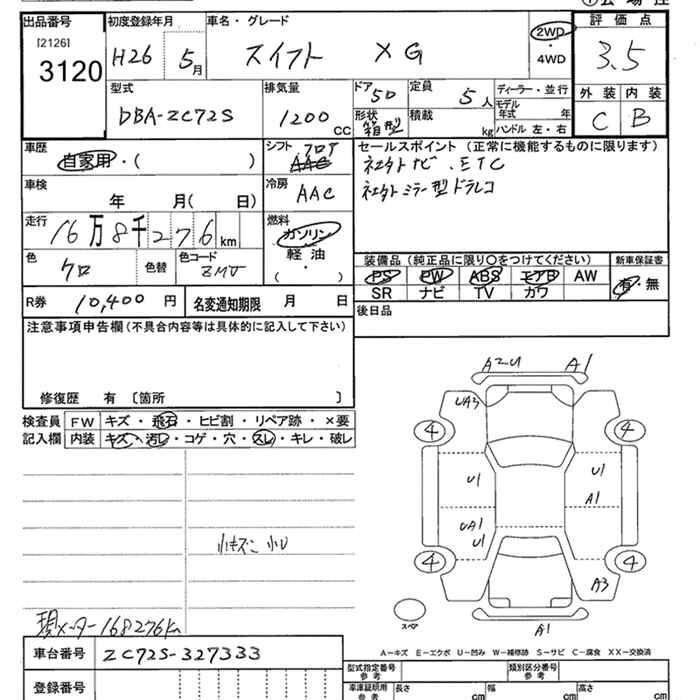 出品番号 初度登録年月 車名・グレード 評価点
[2126] 3120 H26年 5月 スイフト XG 2WD・4WD 3.5
外装 内装
C B
型式 排気量 ドア 定員 ディーラー・並行
DBA-ZC72S 1200cc 5D 5人 モデル年式 年
形状 箱型 積載 kg ハンドル 左・右
車歴 自家用・( ) シフト フロア AAC
セールスポイント (正常に機能するものに限ります)
ネクタト ナビ . ETC
車検 年 月( 日) 冷房 AAC
走行 16万8千276km 燃料 ガソリン 軽油 ・( )
色 クロ 色替 色コード ZMV
装備品 (純正品に限り〇をつけてください) 新車保証書
PS PW ABS エアB AW 有・無
SR ナビ TV カワ
R券 10,400円 名変通知期限 月 日
後日品
注意事項申告欄(不具合内容等は具体的に記入して下さい)
修復歴 有 [箇所 ]
検査員 FW キズ・飛石・ヒビ割・リペア跡・×要
記入欄 内装 キズ・汚レ・コゲ・穴・スレ・キレ・破レ
A2U A1
UA3
4 4
U1 U1
A1
UA1
U1
4 4
A3
スペア
A1
小キズ 小U
現メーター168276km
A-キズ E-エクボ U-凹み W-補修跡 S-サビ C-腐食 XX-交換済
車台番号 ZC72S-327333
型式指定番号 参考 類別区分番号 参考
登録番号
車庫証明用 参考 長さ cm 幅 cm 高さ cm